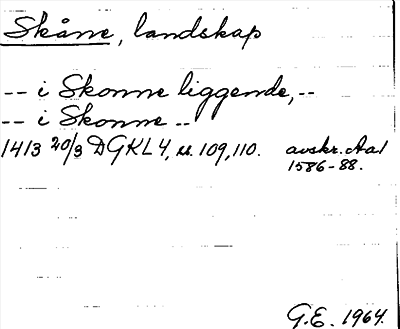 Skåne, landskap
-- i Skonne liggende, --
-- i Skonne --
1413 20/3 DGKL 4, s. 109, 110. avskr. Aa 1
1586-88.
G.E. 1964.